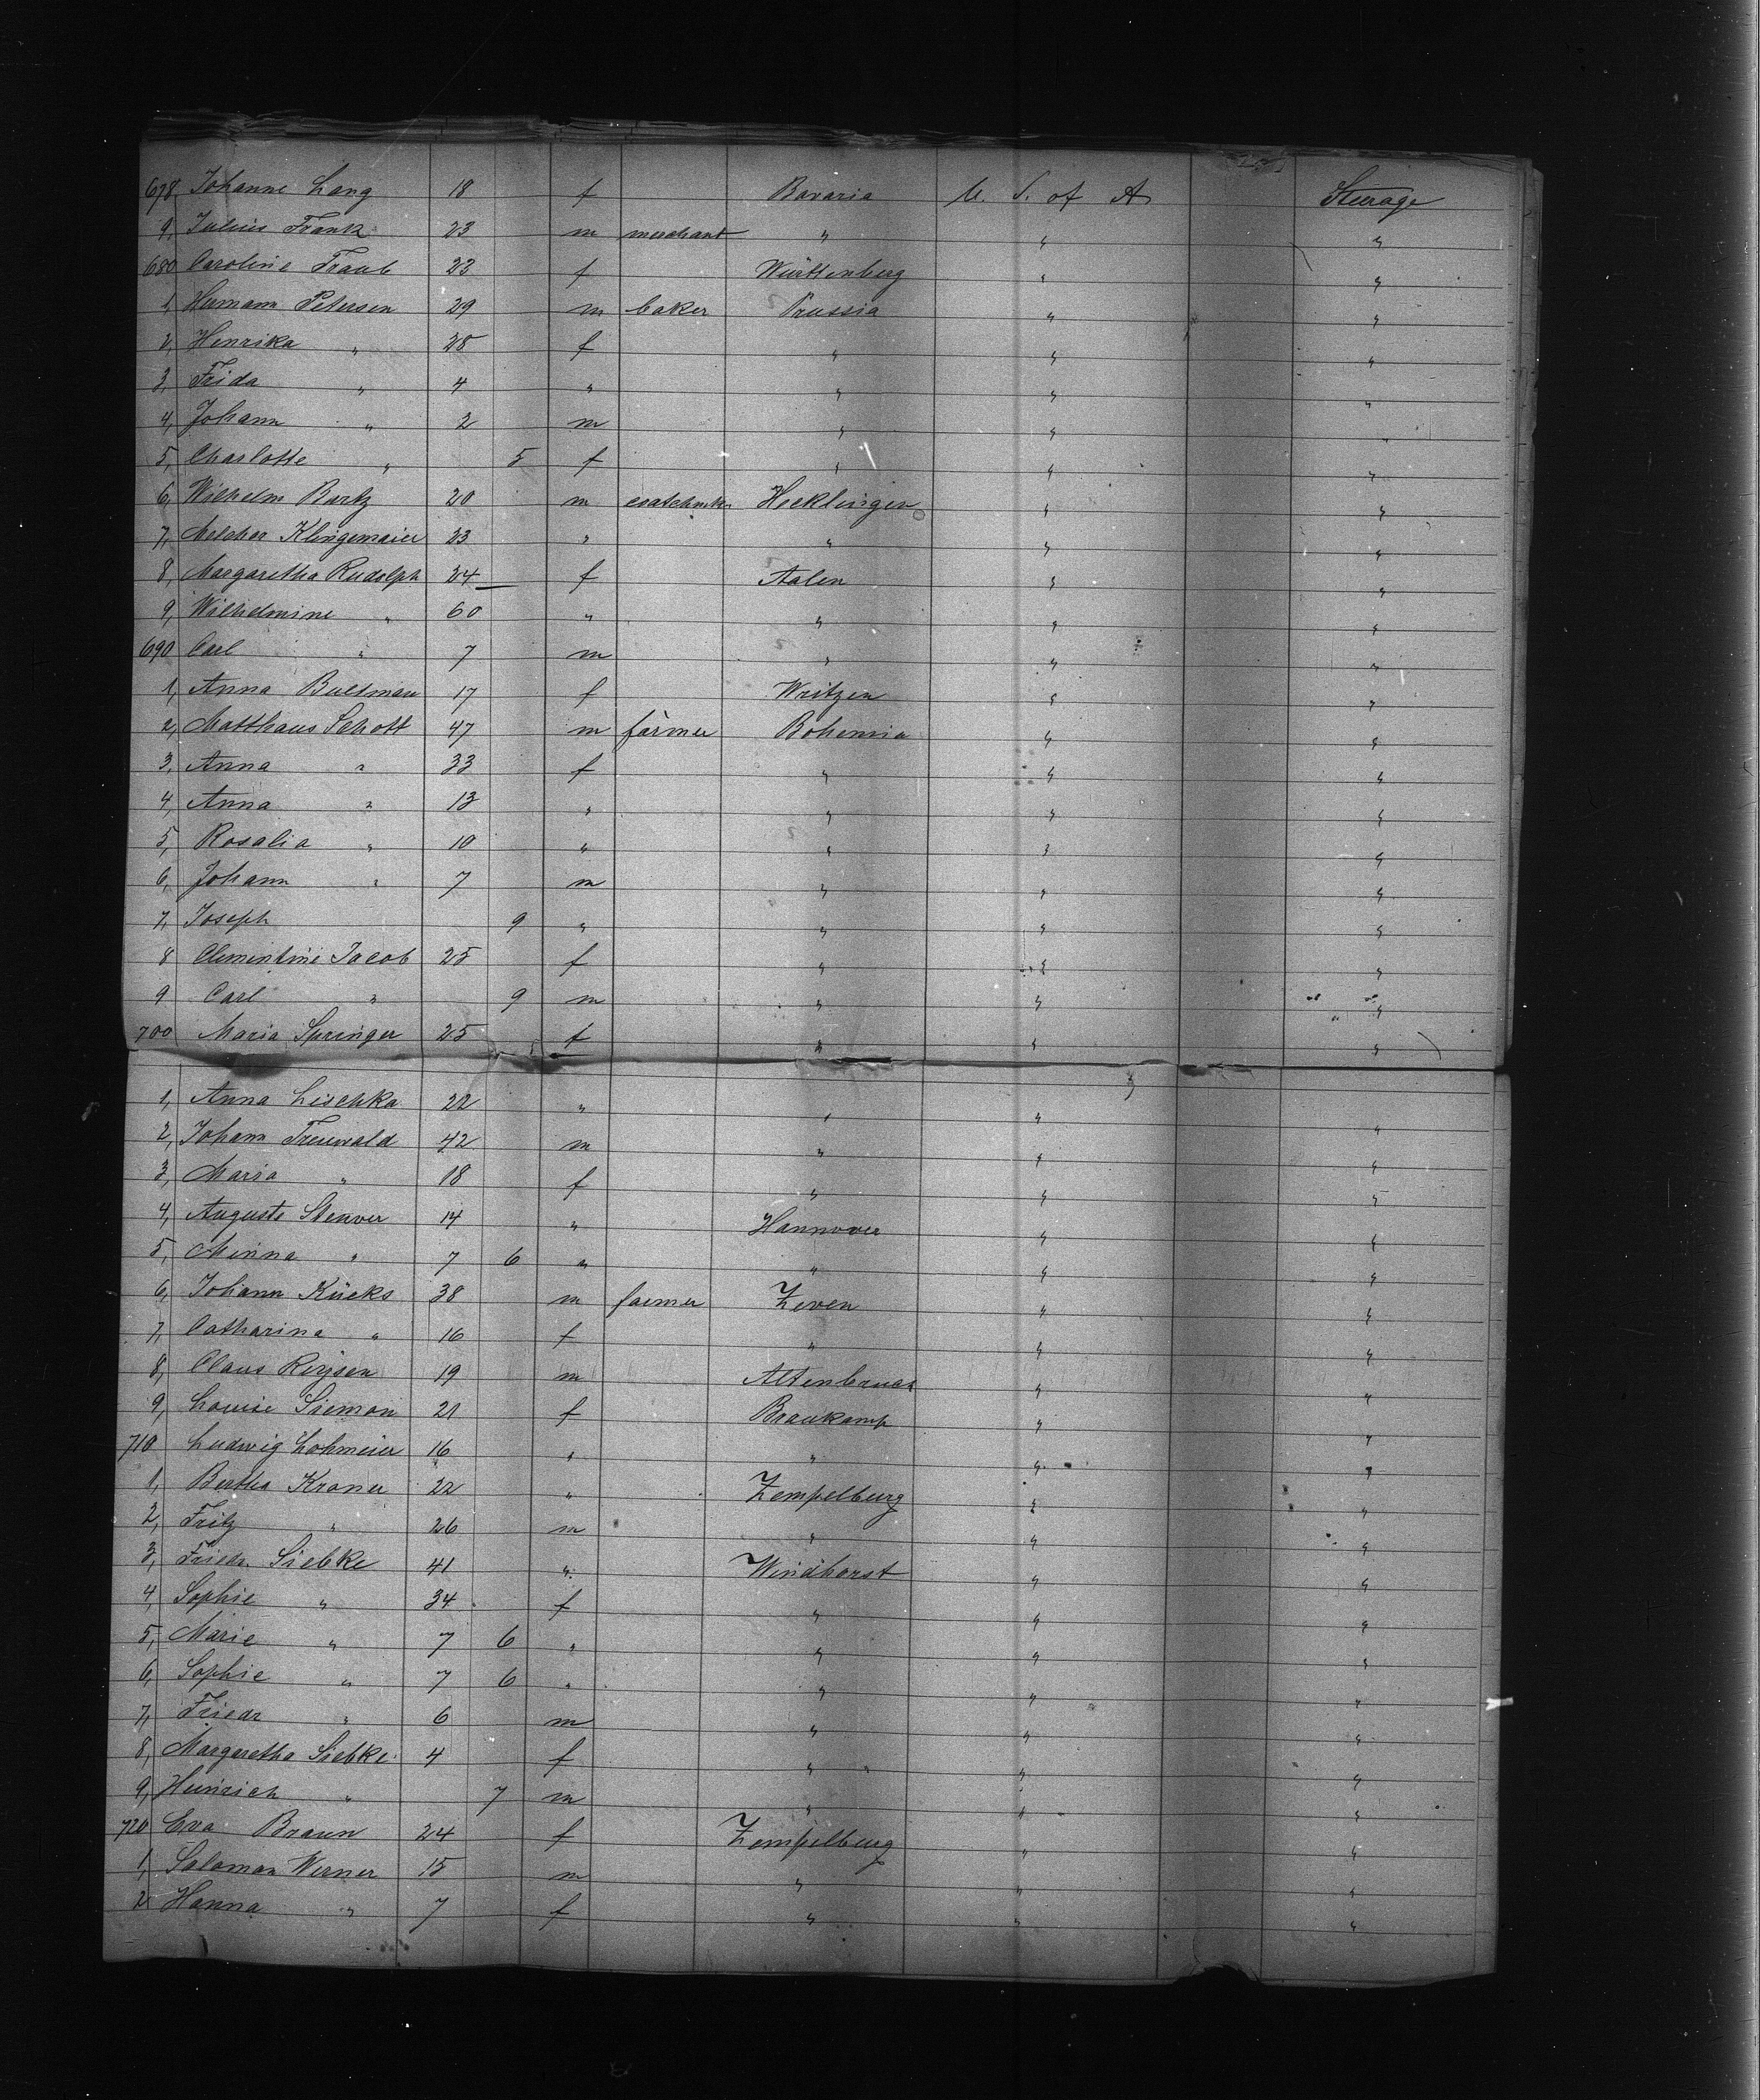 678 Johanne Lang 18 f Bavaria U. S. of A Steerage
9, Julius Frank 23 m merchant " " "
680 Caroline Traub 23 f Württenberg " "
1, Hermann Petersen 29 m baker Prussia " "
2, Henrika " 28 f " " "
3, Frida " 4 " " " "
4, Johann " 2 m " " "
5, Charlotte " 5 f " " "
6, Wilhelm Bartz 20 m Hecklingen " "
7, Melchior Klingemaier 23 " " " "
8, Margaretha Rudolph 24 f Aalen " "
9, Wilhelmine " 60 " " " "
690 Carl " 7 m " " "
1, Anna Bultman 17 f Writzen " "
2, Matthaus Schott 47 m farmer Bohemia " "
3, Anna " 33 f " " "
4, Anna " 13 " " " "
5, Rosalia " 10 " " " "
6, Johann " 7 m " " "
7, Joseph 9 " " " "
8 Clementine Jacob 25 f " " "
9 Carl " 9 m " " "
700 Maria Springer 25 f " " "
1, Anna Lischka 22 " " " "
2, Johann Treuwald 42 m " " "
3, Maria " 18 f " " "
4, Auguste Stenver 14 " Hannover " "
5, Minna " 7 6 " " " "
6, Johann Kücks 38 m farmer Zeven " "
7, Catharina " 16 f " " "
8, Claus 19 m Altenbruch " "
9, Louise Siemon 21 f Braukamp " "
710 Ludwig Lohmeier 16 " " " "
1, Bertha Kroner 22 " Zempelburg " "
2, Fritz " 26 m " " "
3, Friedr. Siebke 41 " Windhorst " "
4, Sophie " 34 f " " "
5, Marie " 7 6 " " " "
6, Sophie " 7 6 " " " "
7, Friedr " 6 m " " "
8, Margaretha Siebke 4 f " " "
9, Heinrich " 7 m " " "
720 Eva Braun 24 f Zempelburg " "
1, Salomon Werner 15 m " " "
2 Hanna " 7 f " " "